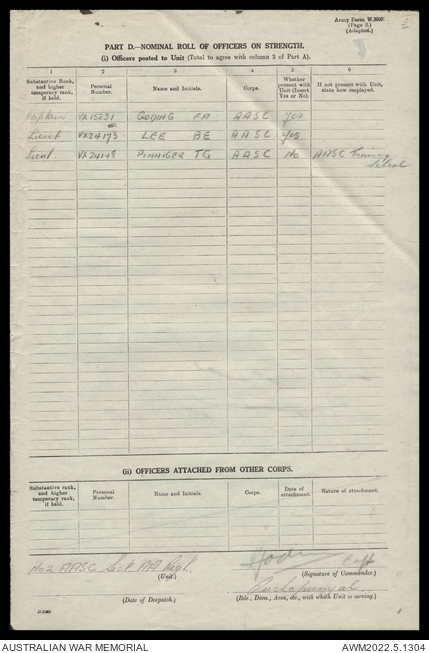 Army Form W.3008.
(Page 2.)
(Adapted.)
PART D.—NOMINAL ROLL OF OFFICERS ON STRENGTH.
(i) Officers posted to Unit (Total to agree with column 2 of Part A).
1 2 3 4 5 6
Substantive Rank, and higher temporary rank, if held. Personal Number. Name and Initials. Corps. Whether present with Unit (Insert Yes or No). If not present with Unit, state how employed.
Captain VX15231 GODING FA AASC Yes
Lieut VX24173 LEE BE AASC Yes
Lieut VX24148 PINNIGER TG AASC No AASC Training
School
(ii) OFFICERS ATTACHED FROM OTHER CORPS.
Substantive rank, and higher temporary rank, if held. Personal Number. Name and Initials. Corps. Date of attachment. Nature of attachment.
No2 AASC Sect AA Regt. Capt
(Unit.) (Signature of Commander.)
Puckapunyal
(Date of Despatch.) (Bde., Divn., Area, etc., with which Unit is serving.)
AUSTRALIAN WAR MEMORIAL AWM2022.5.1304